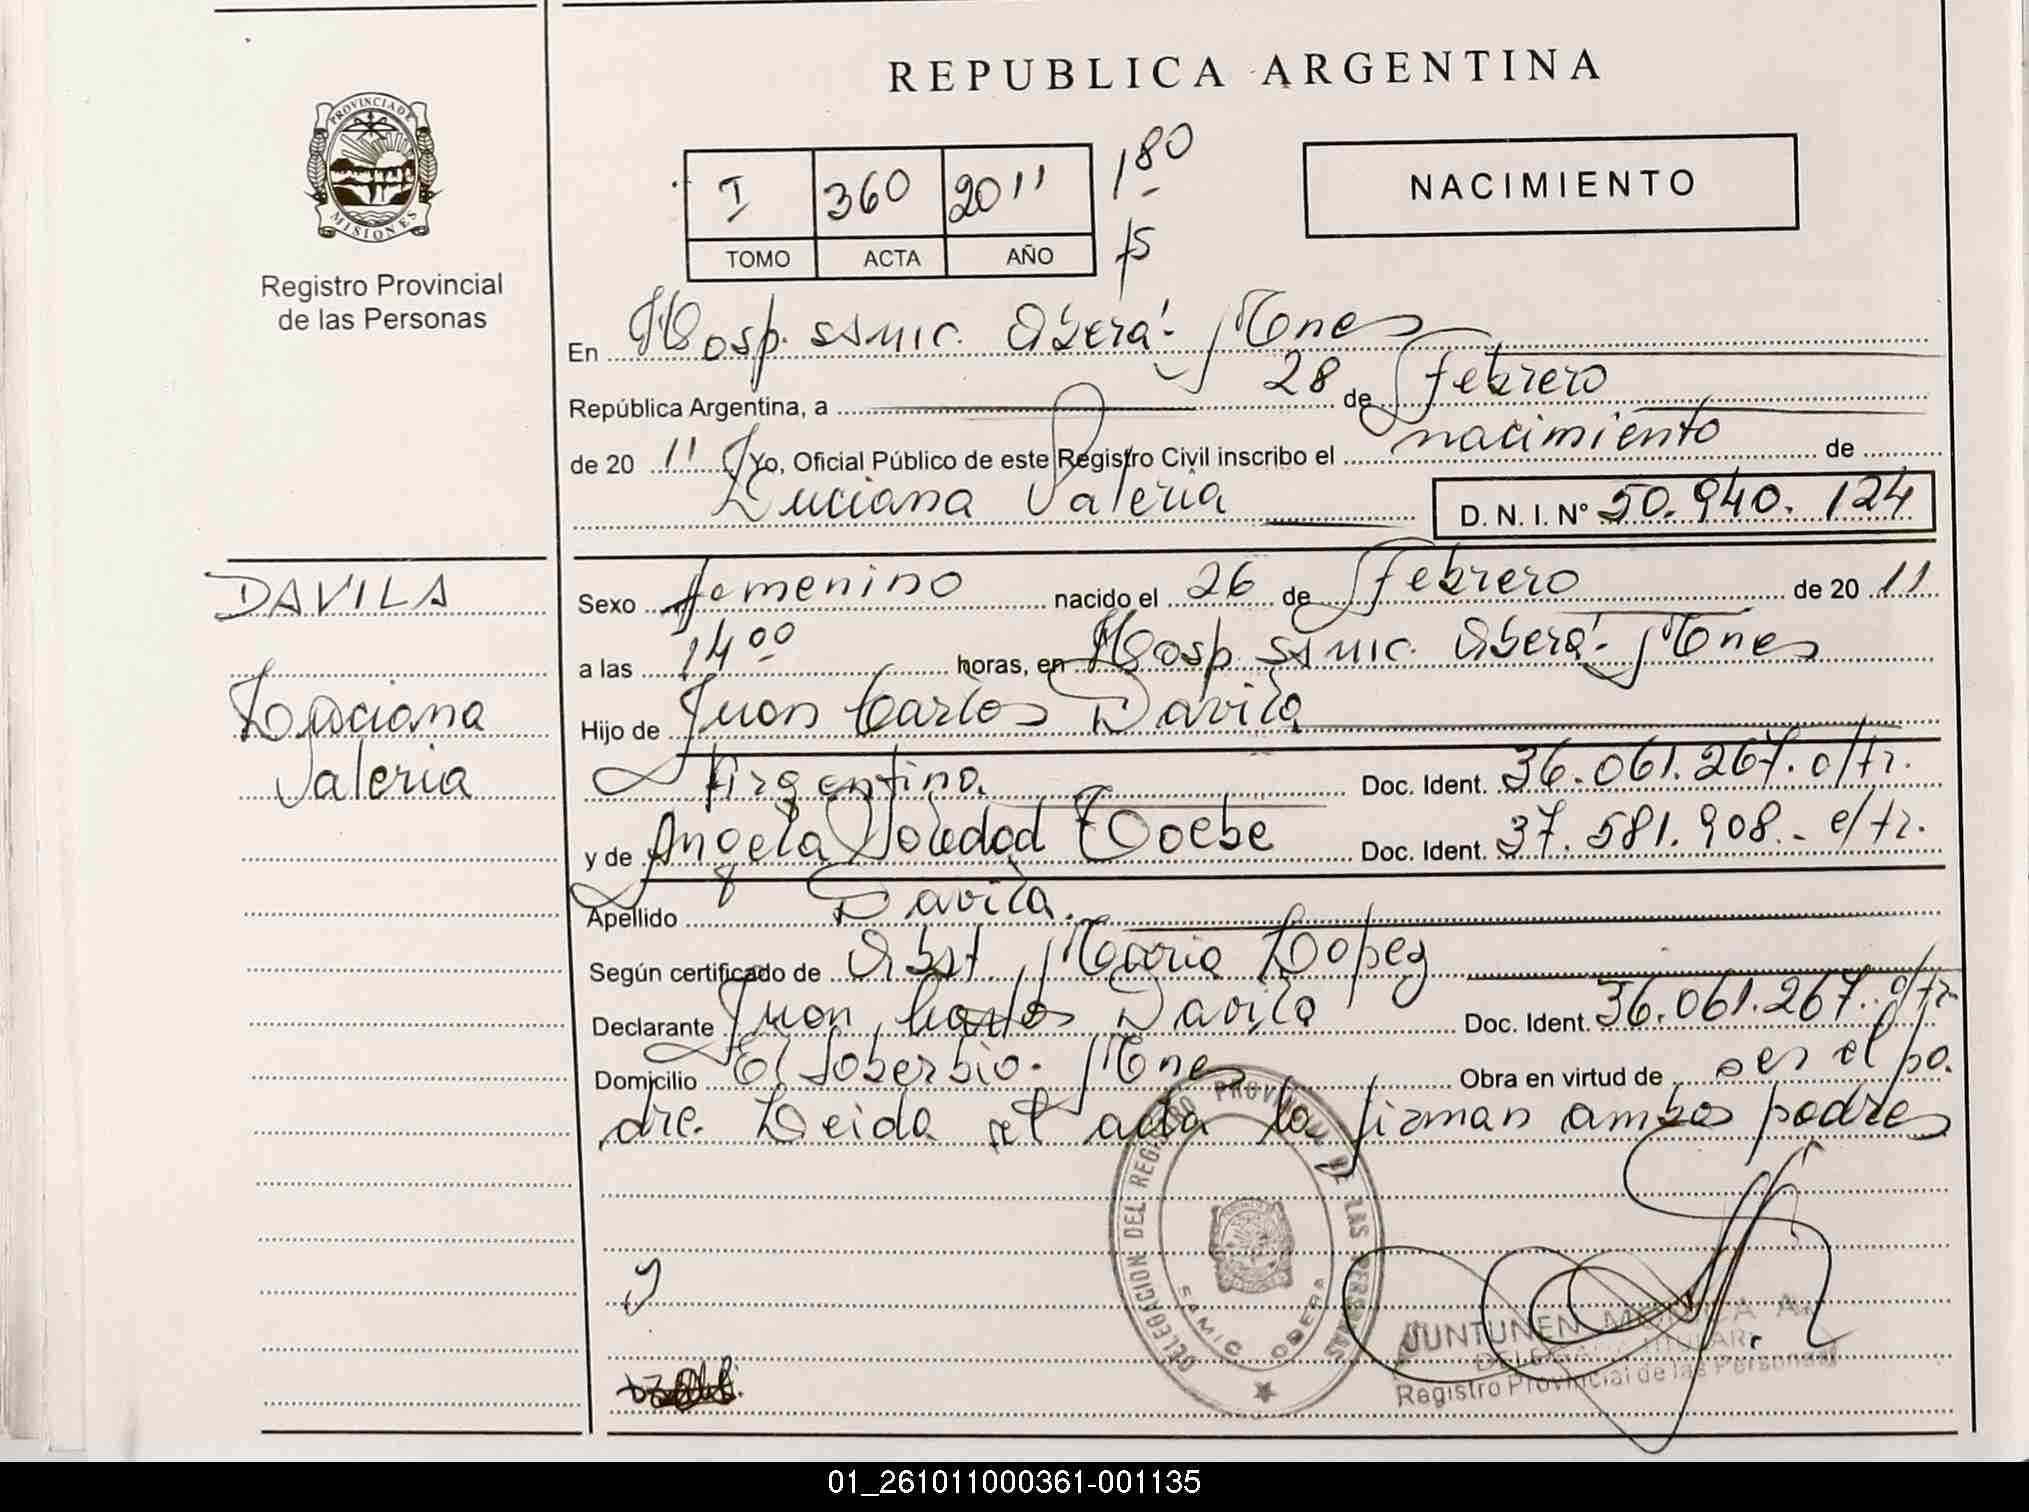 REPUBLICA ARGENTINA
PROVINCIA DE
MISIONES
Registro Provincial
de las Personas
I 360 2011
TOMO ACTA AÑO
180
15
NACIMIENTO
En Hosp. SAMIC. Oberá - Mnes
República Argentina, a 28 de febrero
de 20 11 Yo, Oficial Público de este Registro Civil inscribo el nacimiento de
Luciana Valeria D. N. I. Nº 50.940.124
DAVILA
Luciana
Valeria
Sexo femenino nacido el 26 de febrero de 20 11
a las 14 00 horas, en Hosp. SAMIC. Oberá - Mnes
Hijo de Juan Carlos Davila
Argentino. Doc. Ident. 36.061.267. c/tr.
y de Angela Soledad Doc. Ident. 37.581.908.- e/tr.
Apellido Davila.
Según certificado de Obst. Maria Lopez
Declarante Juan Carlos Davila Doc. Ident. 36.061.267. c/tr.
Domicilio El Soberbio - Mnes Obra en virtud de ser el pa.
dre. Leida el acta la firman ambos padres
DELEGACION DEL REGISTRO PROVINCIAL DE LAS PERSONAS
SAMIC OBERA
JUNTUNEN MONICA A.
DELEGADA TITULAR
Registro Provincial de las Personas
01_261011000361-001135